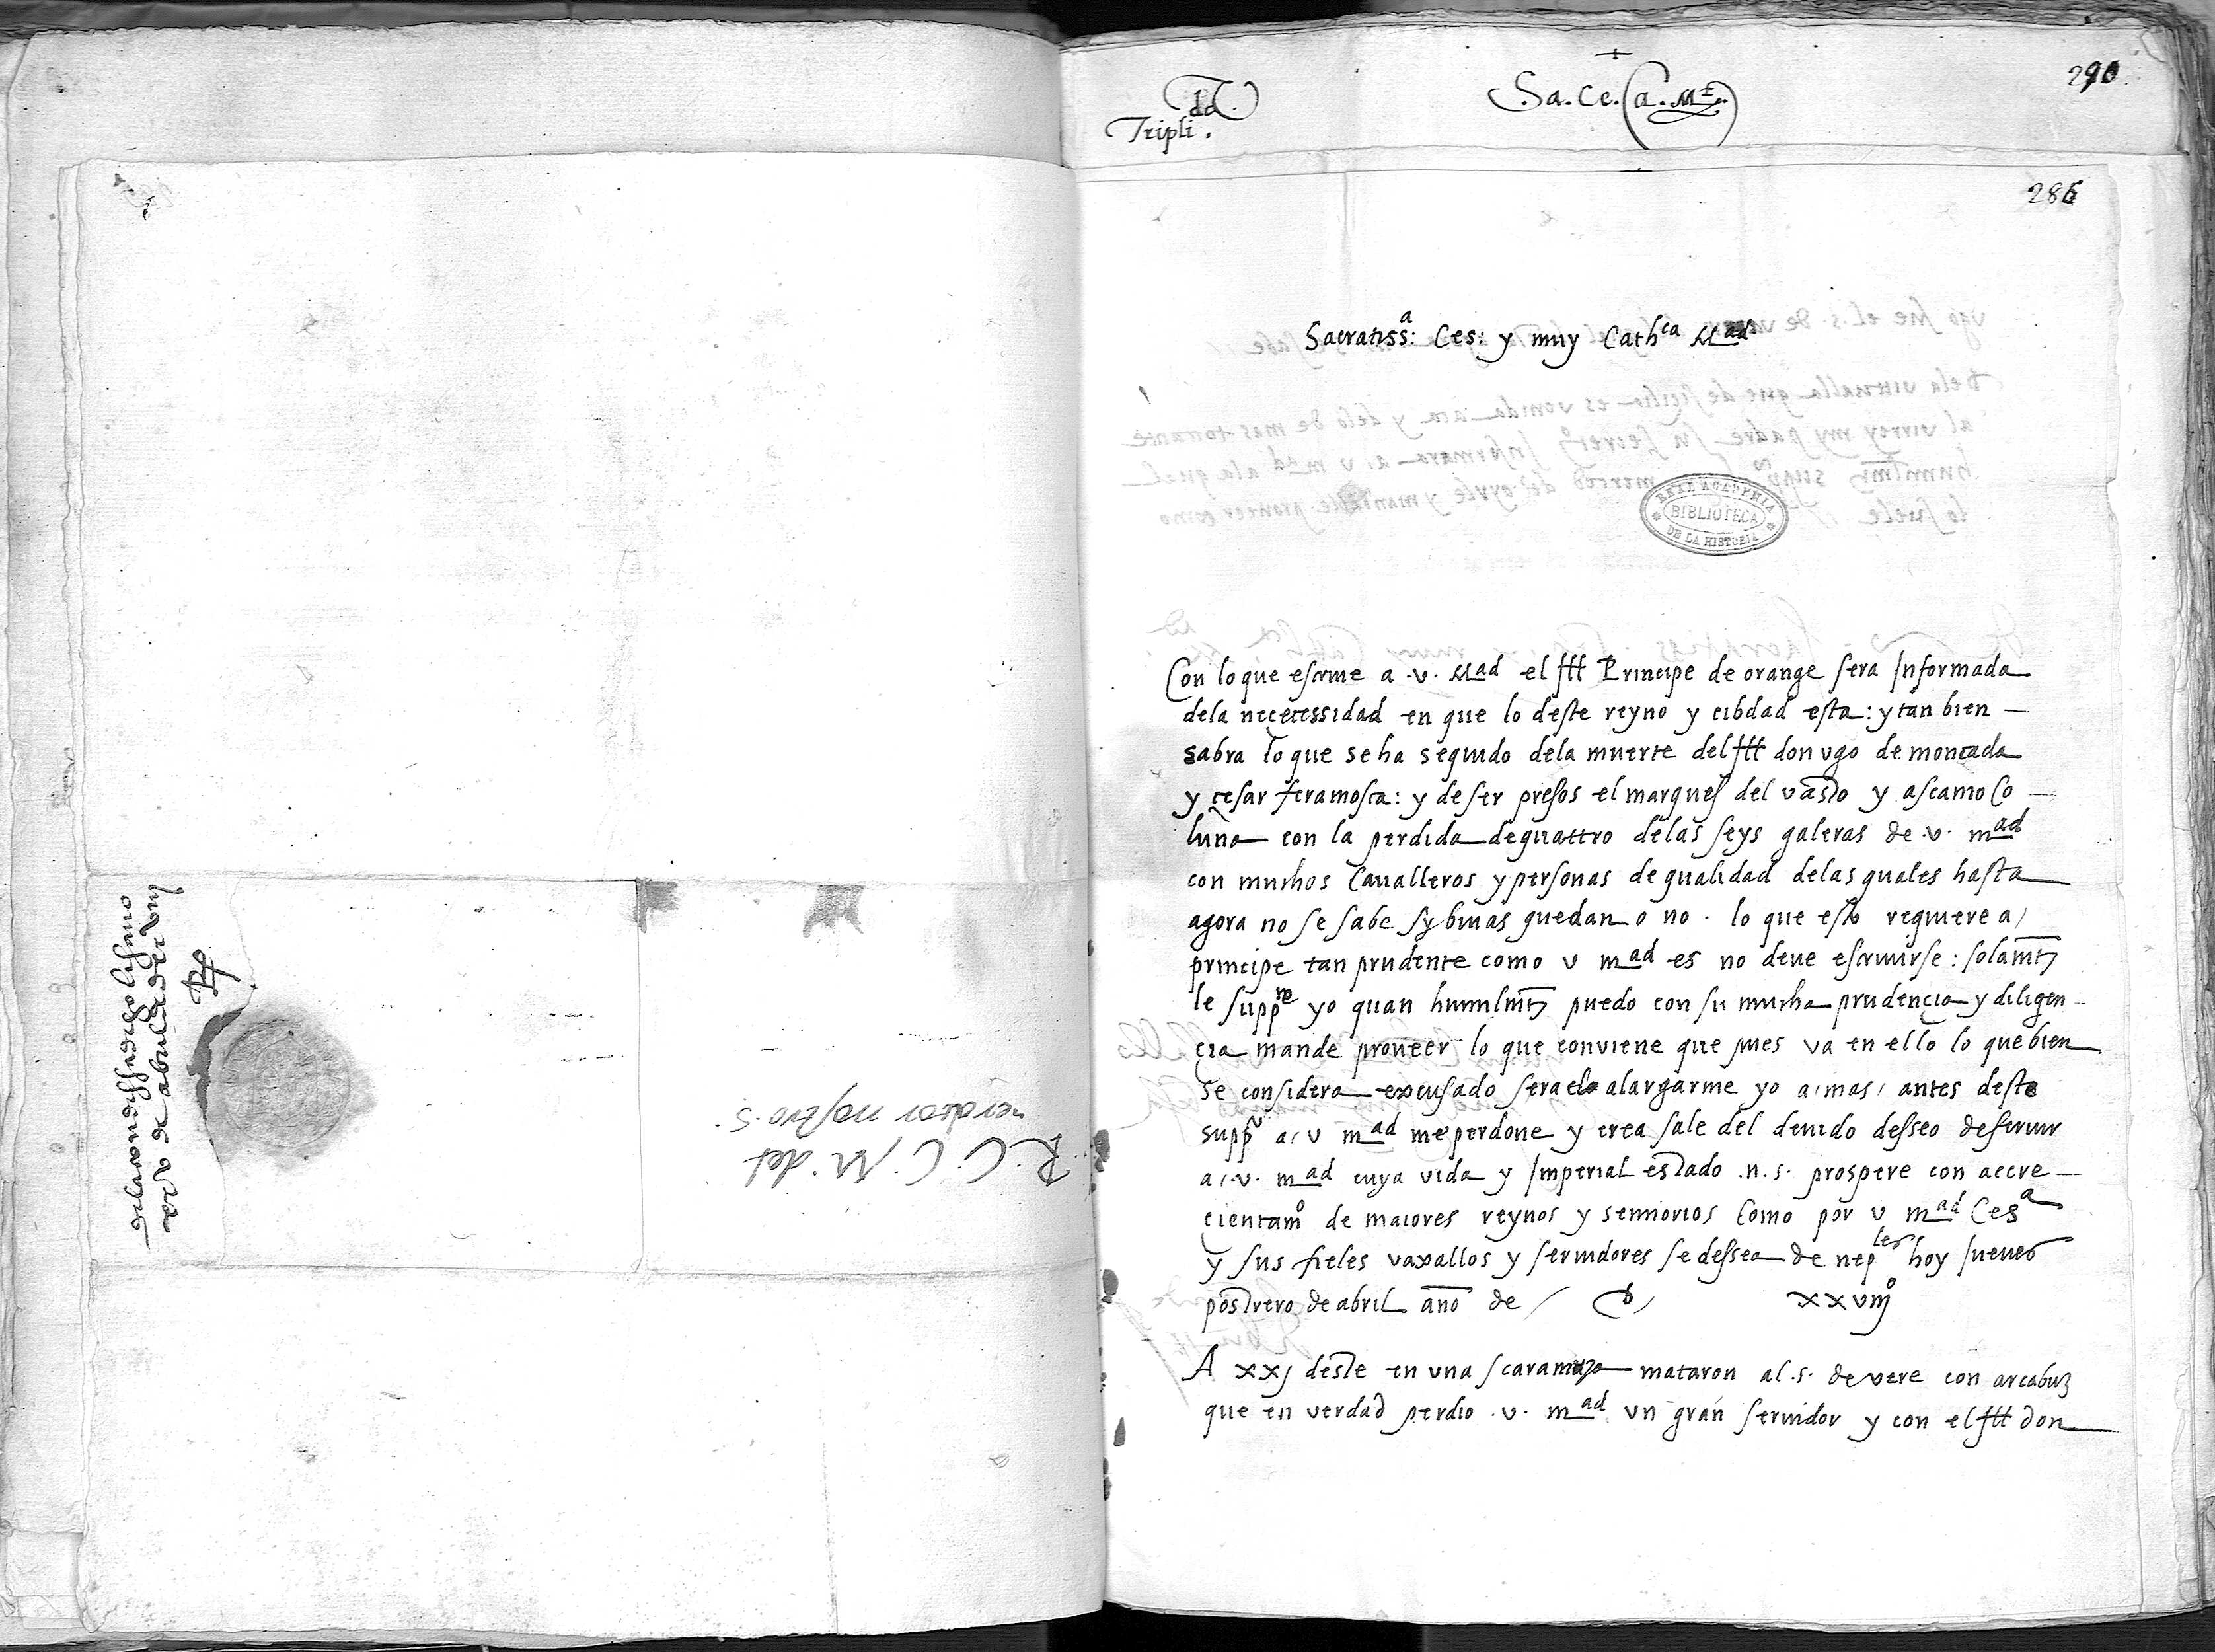 da
Tripli.
Sa. Ce. Ca. Mt.
290
286
Sacratissa: Ces: y muy Cathca Mad
REAL ACADEMIA
BIBLIOTECA
DE LA HISTORIA
Con lo que escriue a .v. Mad el Ill Principe de orange sera Informada
dela nececessidad en que lo deste reyno y cibdad esta: y tan bien
sabra lo que se ha seguido dela muerte del Ill don vgo de moncada
y cesar feramosca: y de ser presos el marques del vasto y ascanio Co
luna con la perdida de quattro delas seys galeras de .v. mad
con muchos Caualleros y personas de qualidad delas quales hasta
agora no se sabe sy biuas quedan o no . lo que esto requiere a/
principe tan prudente como v mad es no deue escriuirse: solamte
le suppco yo quan humilmte puedo con su mucha prudencia y diligen
cia mande proueer lo que conuiene que pues va en ello lo que bien
se considera excusado sera el alargarme yo a/ mas/ antes desto
suppco a/ v mad me perdone y crea sale del deuido desseo de seruir
a/ .v. mad cuya vida y Imperial estado .n.s. prospere con accre
cientamo de maiores reynos y sennorios Como por v mad Cesa
y sus fieles vaxallos y seruidores se dessea de neples hoy Jueues
postrero de abril año de / D / xxviijo
A xxj deste en vna scaramuza mataron al .s. de vere con arcabuz
que en verdad perdio .v. mad vn gran seruidor y con el Ill don
R. C. C. M. del
nerador nostro .S.
de abril de xxviij
Rp